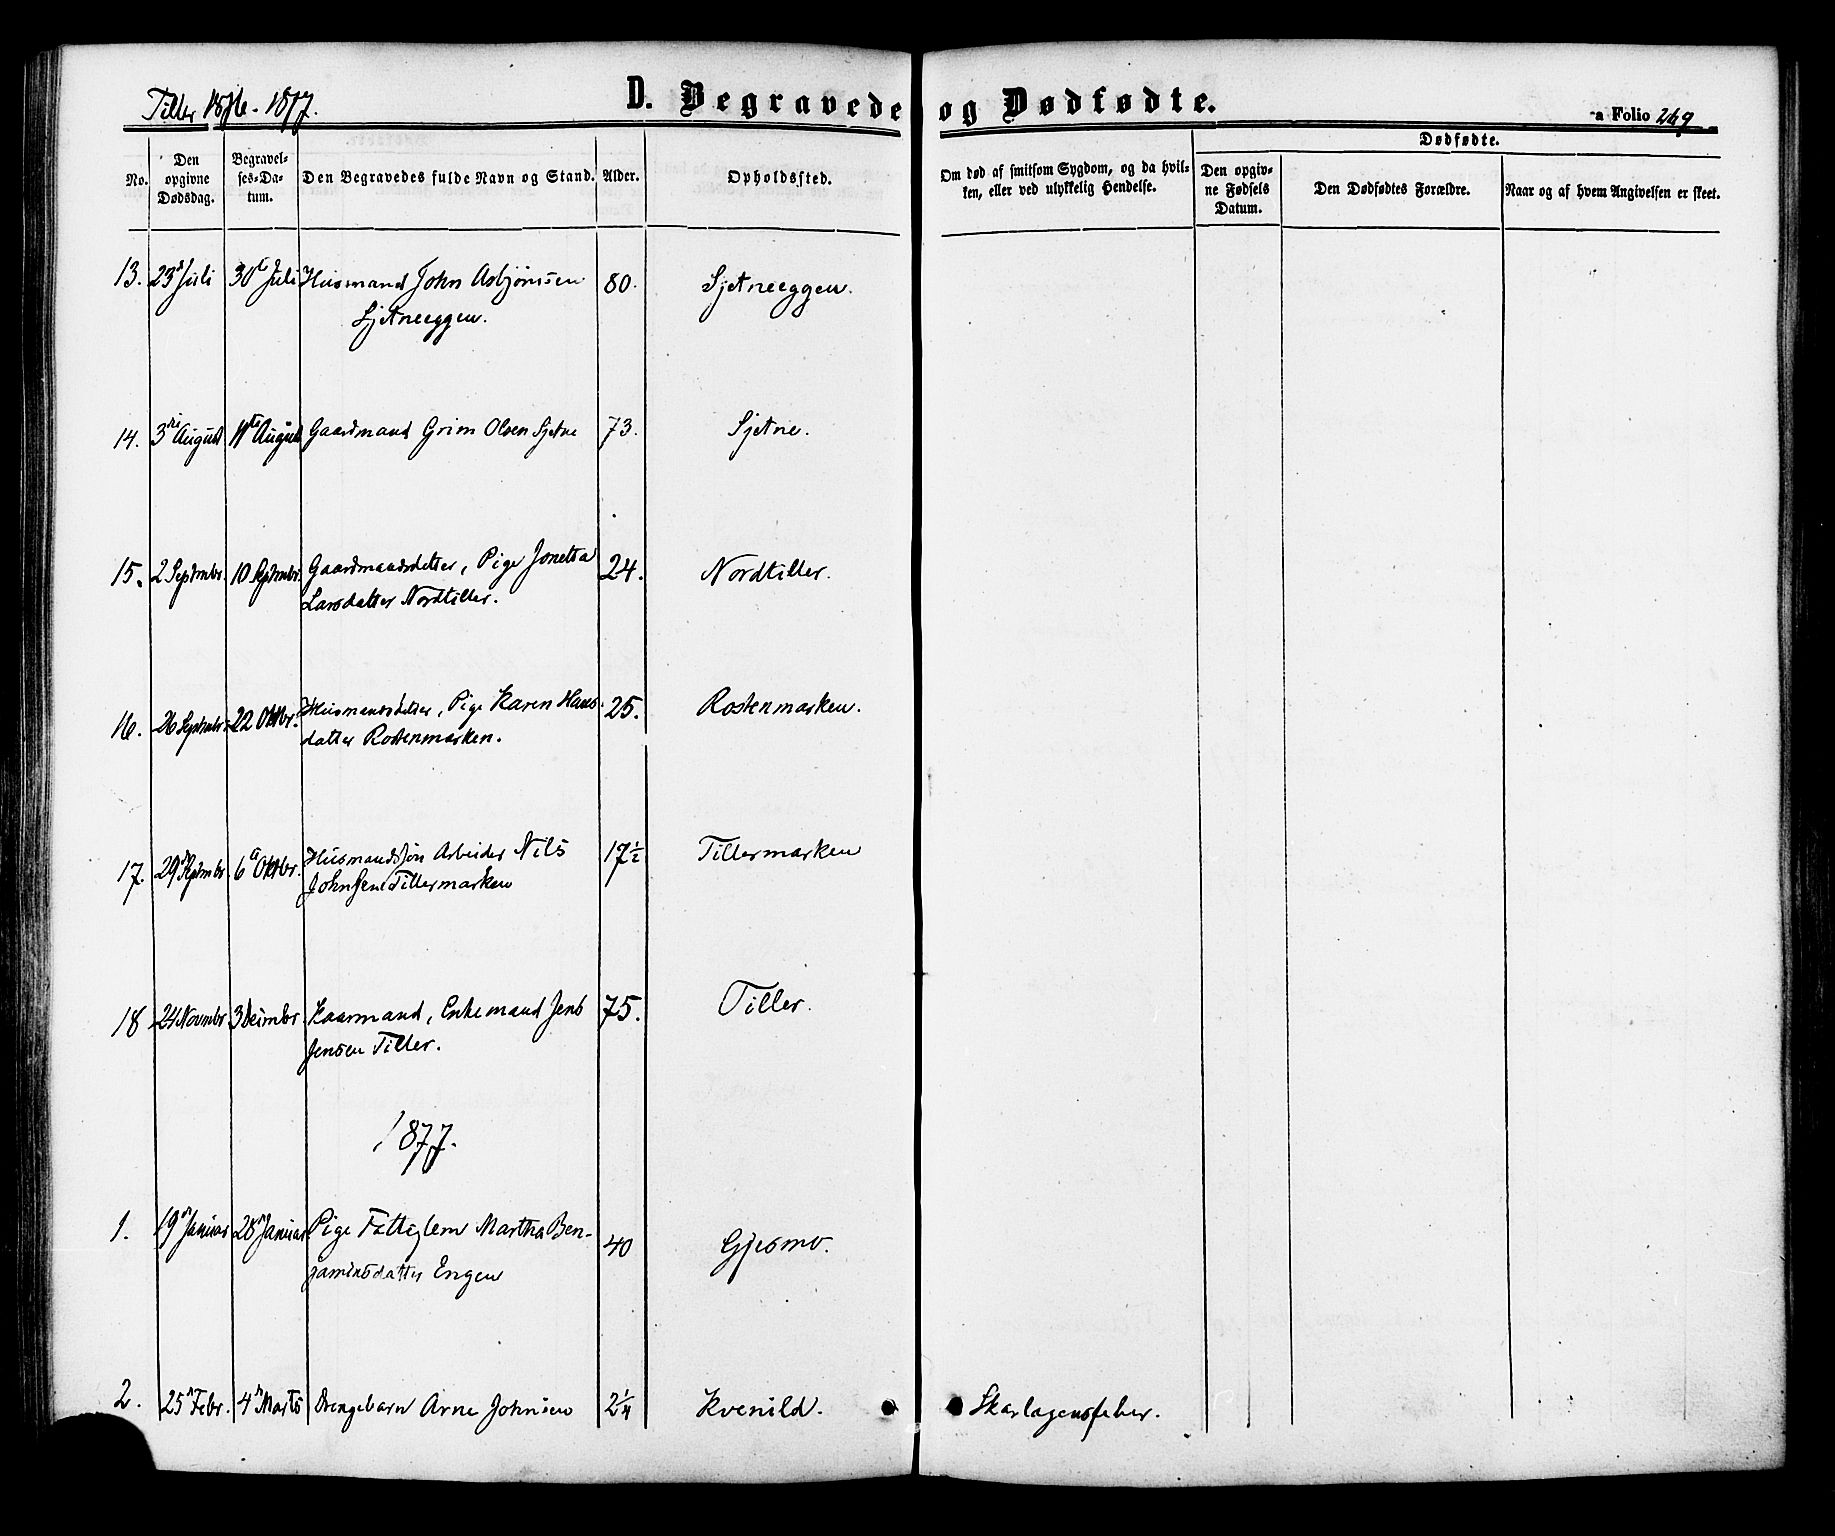 Tiller 1876-1877.
D. Begravede og Dødfødte.
Folio 269
No.
Den opgivne Dødsdag.
Begravel-
ses-Da-
tum.
Den Begravedes fulde Navn og Stand.
Alder.
Opholdssted.
Om død af smitsom Sygdom, og da hvil-
ken, eller ved ulykkelig Hendelse.
Dødfødte.
Den opgiv-
ne Fødsels
Datum.
Den Dødfødtes Forældre.
Naar og af hvem Angivelsen er skeet.
13. 23d Juli 30te Juli Husmand John Asbjørnsen 80. Sjetneeggen.
Sjetneeggen.
14. 3die August 11te August Gaardmand Grim Olsen Sjetne 73. Sjetne.
15. 2 Septembr. 10 Septembr. Gaardmandsdatter, Pige Jonetta 24. Nordtiller.
Larsdatter Nordtiller.
16. 26 Septembr. 22 Oktbr. Husmandsdatter, Pige Karen Hans- 25. Rostenmarken.
datter Rostenmarken.
17. 29d Septmbr 6te Oktbr. Husmandssøn Arbeider Nils 17½ Tillermarken
Johnsen Tillermarken
18 24 Novmbr 3 Decmbr. Kaarmand, Enkemand Jens 75. Tiller.
Jensen Tiller.
1877.
1. 19d Januar 28d Januar Pige Fattiglem Martha Ben- 40 Gjesmo.
jaminsdatter Engen
2. 25d Febr. 4d Marts Drengebarn Arne Johnsen 2¼ Kvenild. Skarlagensfeber.